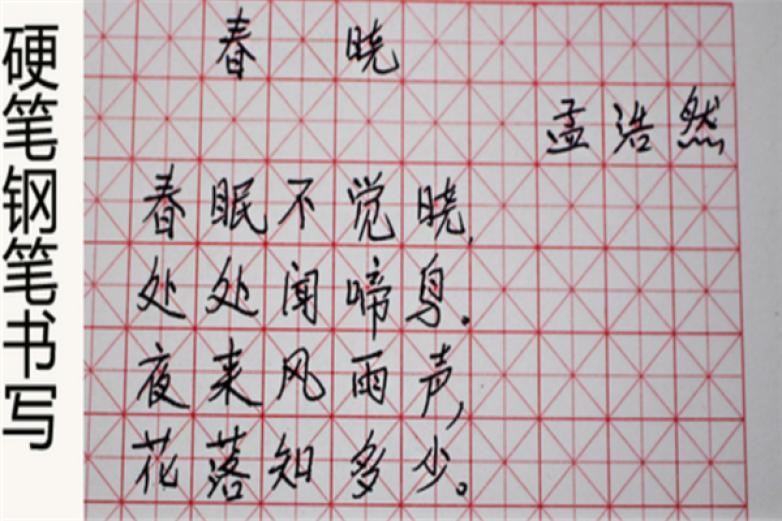 硬笔钢笔书写
春晓
孟浩然
春眠不觉晓,
处处闻啼鸟。
夜来风雨声,
花落知多少。